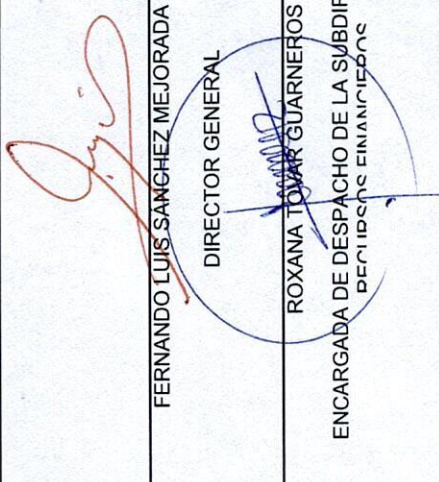 FERNANDO LUIS SÁNCHEZ MEJORADA
DIRECTOR GENERAL
ROXANA TOVAR GUARNEROS
ENCARGADA DE DESPACHO DE LA SUBDIR
RECURSOS FINANCIEROS